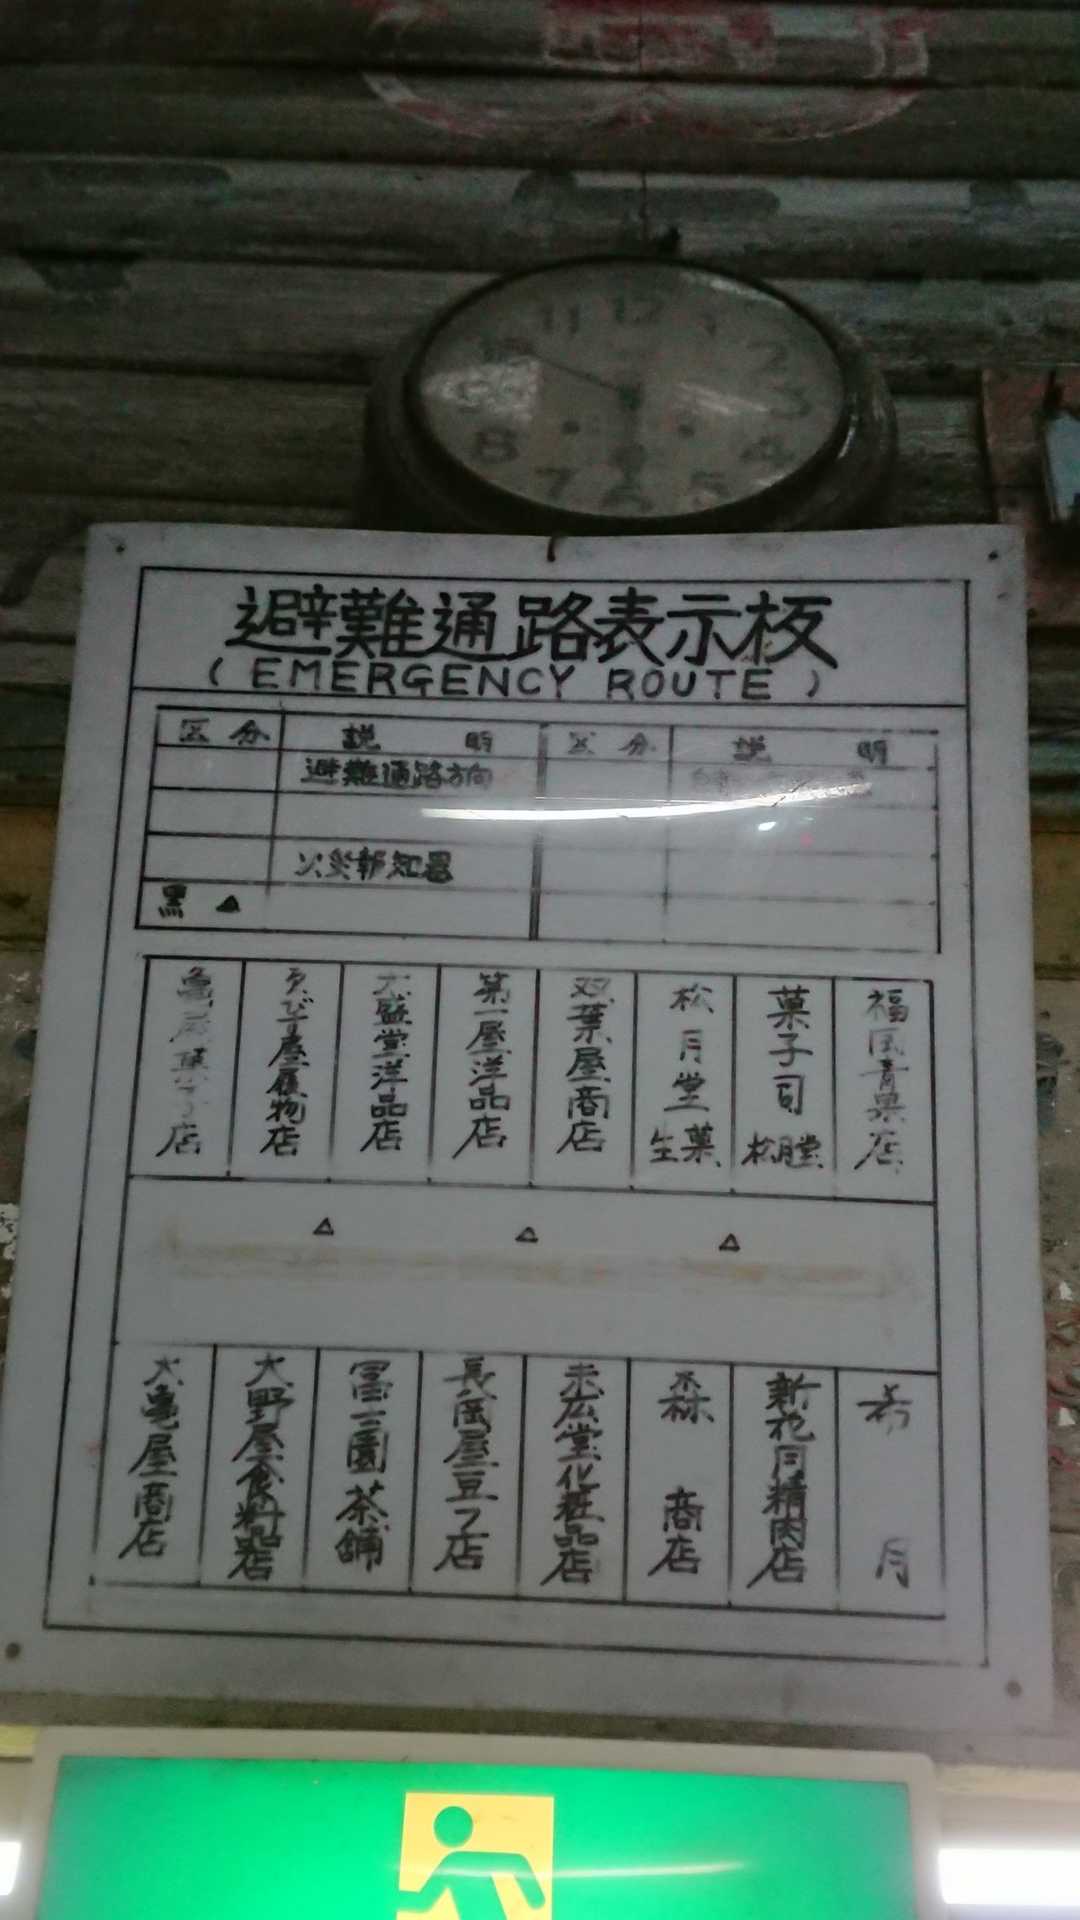 11 12 1
10 2
3
8 4
7 6 5
避難通路表示板
( EMERGENCY ROUTE )
区分 説明 区分 説明
避難通路方向
火災報知器
黒 △
ゑびす屋履物店
大盛堂洋品店
第一屋洋品店
双葉屋商店
松月堂生菓
菓子司 松月堂
福岡青果店
△ △ △
大亀屋商店
大野屋食料品店
冨士園茶舗
長岡屋豆フ店
末広堂化粧品店
森商店
新花月精肉店
希月